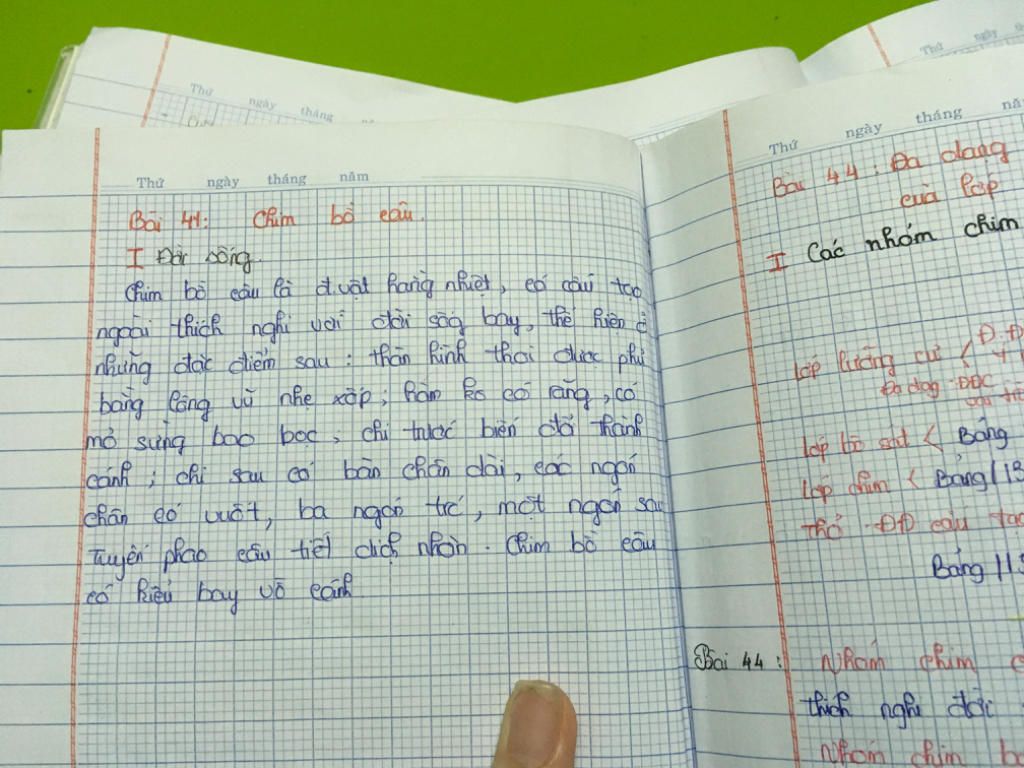 Thứ ngày tháng
Thứ ngày
Thứ ngày tháng năm
Bài 41: Chim bồ câu.
I Đời sống.
Chim bồ câu là đ.vật hằng nhiệt, có cấu tạo
ngoài thích nghi với đời sốg bay, thể hiện ở
những đặc điểm sau: thân hình thoi được phủ
bằng lông vũ nhẹ xốp; hàm ko có răng, có
mỏ sừng bao bọc; chi trước biến đổi thành
cánh; chi sau có bàn chân dài, các ngón
chân có vuốt, ba ngón trc, một ngón sau
Tuyến phao câu tiết dịch nhờn. Chim bồ câu
có kiểu bay vỗ cánh
Thứ ngày tháng
Bài 44: Đa dạng
của lớp
I Các nhóm chim
lớp lưỡng cư <
Đa dạg
lớp bò sát < Bảng
lớp chim < Bảng
Thỏ - ĐĐ cấu tạo
Bảng
Bài 44: Nhóm chim
thích nghi đời
Nhóm chim